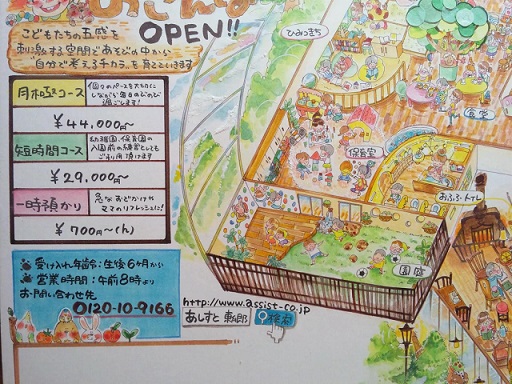 OPEN!!
こどもたちの五感を
刺激する空間であそびの中から
"自分で考えるチカラ"を育てていきます
月極コース
個々のペースを大切に
しながら毎日のびのび
過ごします!
￥44,000円〜
短時間コース
幼稚園、保育園の
入園前の練習としても
ご利用頂けます
￥29,000円〜
一時預かり
急なおでかけや
ママのリフレッシュに!
￥700円〜(/h)
受け入れ年齢:生後6ヶ月から
営業時間:午前8時より
お問い合わせ先
0120-10-9166
http://www.assist-co.jp
あしすと
検索
ひみつきち
食堂
保育室
おふろ・トイレ
園庭